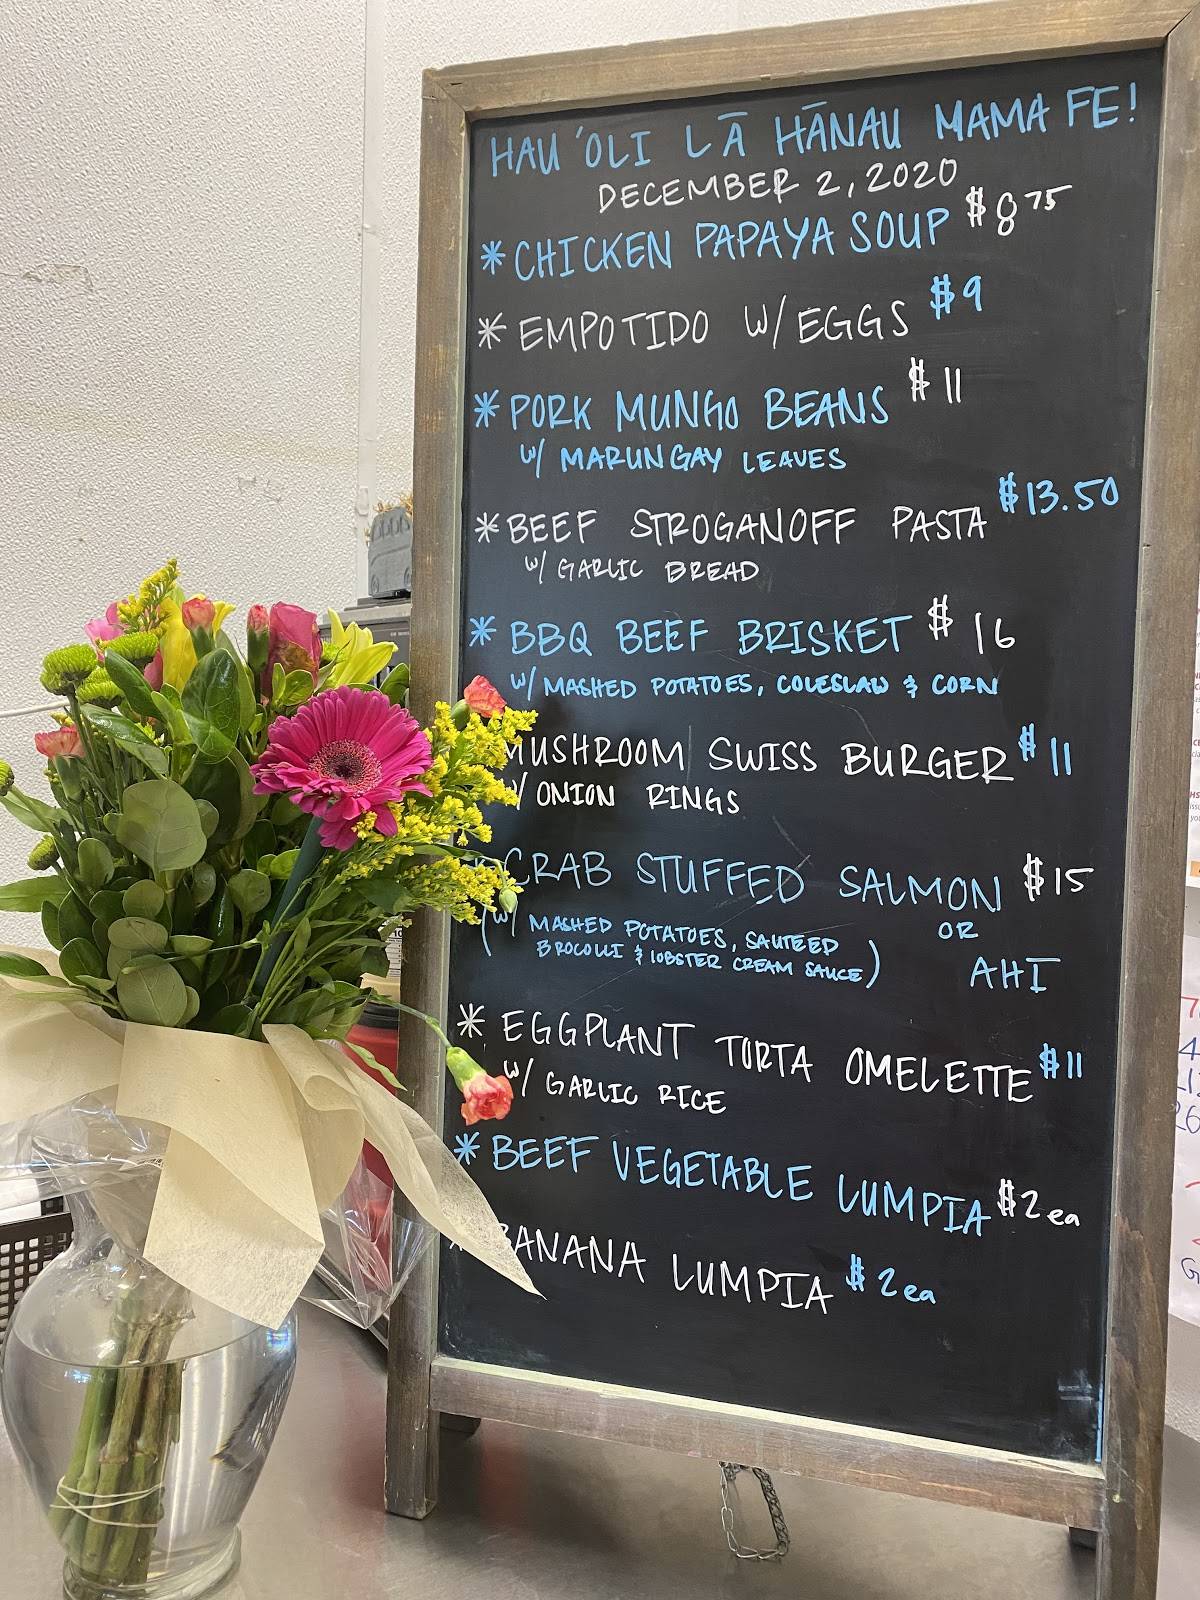 HAU'OLI LĀ HĀNAU MAMA FE!
DECEMBER 2, 2020
* CHICKEN PAPAYA SOUP $8 75
* EMPOTIDO W/ EGGS $9
* PORK MUNGO BEANS $11
W/ MARUNGAY LEAVES
* BEEF STROGANOFF PASTA $13.50
W/ GARLIC BREAD
* BBQ BEEF BRISKET $16
W/ MASHED POTATOES, COLESLAW & CORN
MUSHROOM SWISS BURGER $11
W/ ONION RINGS
CRAB STUFFED SALMON $15
OR
AHI
(W/ MASHED POTATOES, SAUTEED
BROCOLLI & LOBSTER CREAM SAUCE)
* EGGPLANT TORTA OMELETTE $11
W/ GARLIC RICE
* BEEF VEGETABLE LUMPIA $2 ea
BANANA LUMPIA $2 ea